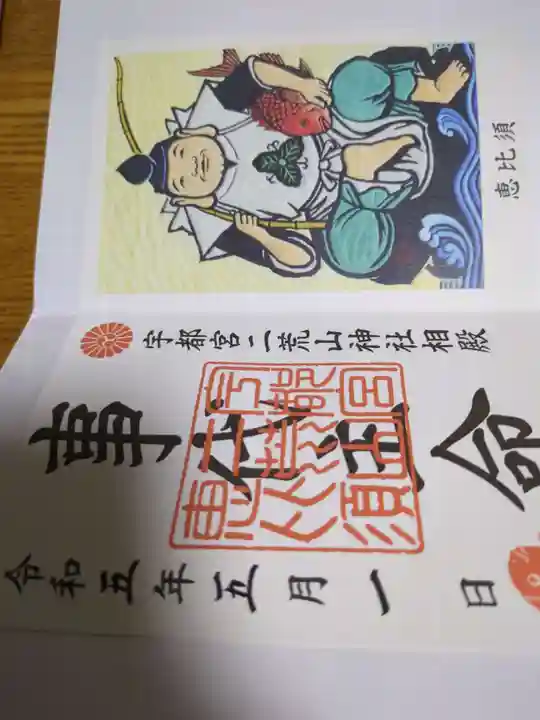 恵比須
宇都宮二荒山神社相殿
事代主命
令和五年五月一日